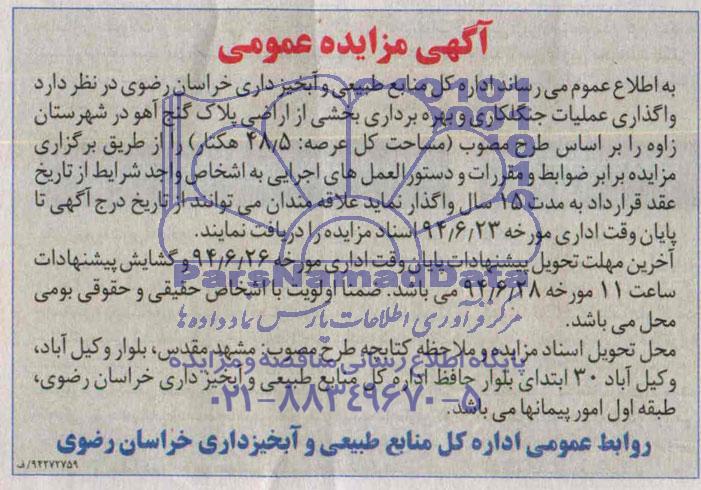 آگهی مزایده عمومی
به اطلاع عموم می رساند اداره کل منابع طبیعی و آبخیزداری خراسان رضوی در نظر دارد
واگذاری عملیات جنگلکاری و بهره برداری بخشی از اراضی پلاک گنج آهو در شهرستان
زاوه را بر اساس طرح مصوب (مساحت کل عرصه: ۴۸٫۵ هکتار) را از طریق برگزاری
مزایده برابر ضوابط و مقررات و دستورالعمل های اجرایی به اشخاص واجد شرایط از تاریخ
عقد قرارداد به مدت ۱۵ سال واگذار نماید علاقه مندان می توانند از تاریخ درج آگهی تا
پایان وقت اداری مورخه ۹۴٫۶٫۲۳ اسناد مزایده را دریافت نمایند.
آخرین مهلت تحویل پیشنهادات پایان وقت اداری مورخه ۹۴٫۶٫۲۶ و گشایش پیشنهادات
ساعت ۱۱ مورخه ۹۴٫۶٫۲۸ می باشد. ضمنا اولویت با اشخاص حقیقی و حقوقی بومی
محل می باشد.
محل تحویل اسناد مزایده و ملاحظه کتابچه طرح مصوب: مشهد مقدس، بلوار وکیل آباد،
وکیل آباد ۳۰ ابتدای بلوار حافظ اداره کل منابع طبیعی و آبخیزداری خراسان رضوی،
طبقه اول امور پیمانها می باشد.
روابط عمومی اداره کل منابع طبیعی و آبخیزداری خراسان رضوی
۹۲۲۷۲۷۵۹/ف
ParsNamadData
مرکز فرآوری اطلاعات پارس نماد داده ها
پایگاه اطلاع رسانی مناقصه و مزایده
۰۲۱-۸۸۳۴۹۶۷۰-۵